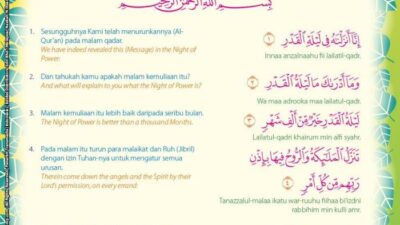 بِسْمِ اللهِ الرَّحْمٰنِ الرَّحِيْمِ
1. Sesungguhnya Kami telah menurunkannya (Al-
Qur'an) pada malam qadar.
We have indeed revealed this (Message) in the Night of
Power:
إِنَّا أَنْزَلْنَاهُ فِي لَيْلَةِ الْقَدْرِ ١
Innaa anzalnaahu fii lailatil-qadr.
2. Dan tahukah kamu apakah malam kemuliaan itu?
And what will explain to you what the Night of Power is?
وَمَا أَدْرَاكَ مَا لَيْلَةُ الْقَدْرِ ٢
Wa maa adrooka maa lailatul-qadr.
3. Malam kemuliaan itu lebih baik daripada seribu bulan.
The Night of Power is better than a thousand Months.
لَيْلَةُ الْقَدْرِ خَيْرٌ مِنْ أَلْفِ شَهْرٍ ٣
Lailatul-qadri khairum min alfi syahr.
4. Pada malam itu turun para malaikat dan Ruh (Jibril)
dengan izin Tuhan-nya untuk mengatur semua
urusan.
Therein come down the angels and the Spirit by their
Lord's permission, on every errand:
تَنَزَّلُ الْمَلَائِكَةُ وَالرُّوحُ فِيهَا بِإِذْنِ
رَبِّهِمْ مِنْ كُلِّ أَمْرٍ ٤
Tanazzalul-malaa ikatu war-ruuhu fiihaa bi'izdni
rabbihim min kulli amr.